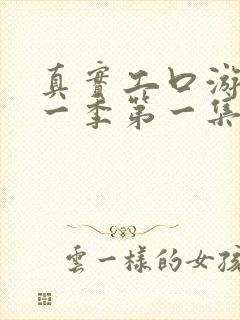 真實工口游
一季第一集
雲一樣的女孩